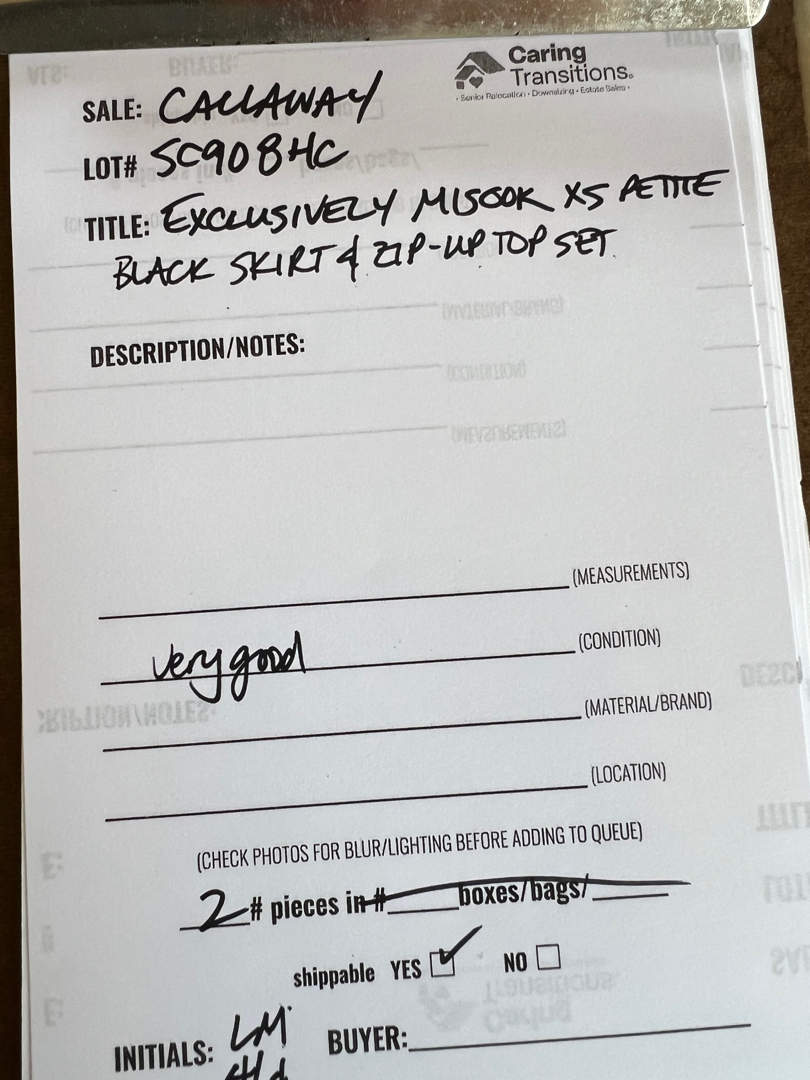 Caring
Transitions®
• Senior Relocation • Downsizing • Estate Sales •
SALE: CALLAWAY
LOT# SC908HC
TITLE: EXCLUSIVELY MISOOK XS PETITE
BLACK SKIRT & ZIP-UP TOP SET
DESCRIPTION/NOTES:
(MEASUREMENTS)
very good (CONDITION)
(MATERIAL/BRAND)
(LOCATION)
(CHECK PHOTOS FOR BLUR/LIGHTING BEFORE ADDING TO QUEUE)
2 # pieces in # boxes/bags/
shippable YES NO
INITIALS: LM
BUYER: